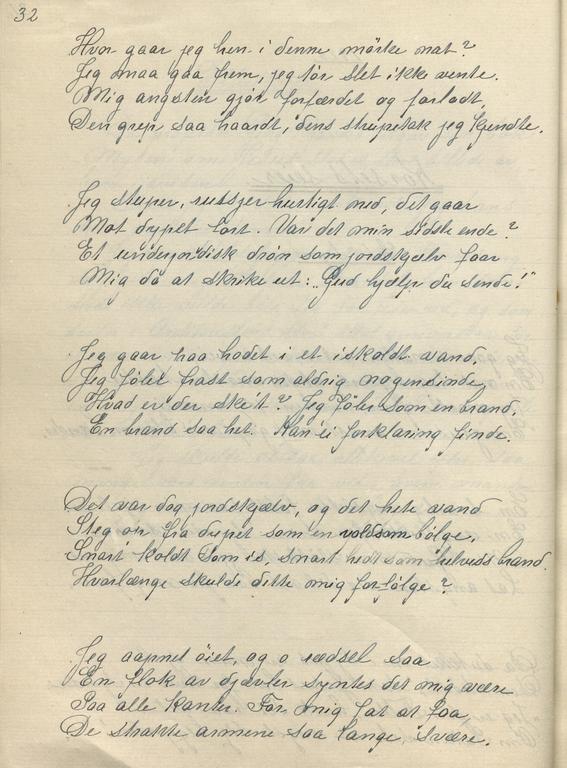 32
Hvor gaar jeg hen i denne mörke nat?
Jeg maa gaa frem, jeg tör slet ikke vente.
Mig angsten gjör forfærdet og forladt,
Den grep saa haardt, dens strupetak jeg kjendte.
Jeg stuper, russjer hurtigt ned, det gaar
Mot dypet fort. Var det min sidste ende?
Et underjordisk drön som jordskjælv faar
Mig da at skrike ut: "Gud hjælp du sende!"
Jeg gaar paa hodet i et iskoldt vand.
Jeg föler frost som aldrig nogensinde,
Hvad er der ske't? Jeg föler som en brand.
En brand saa het. Kan ei forklaring finde.
Det var dog jordskjælv, og det hete vand
Steg op fra dypet som en voldsom bölge.
Snart koldt som is, snart hedt som helveds brand.
Hvorlænge skulde dette mig forfölge?
Jeg aapnet öiet, og o rædsel saa
En flok av djævler syntes det mig være
Paa alle kanter. For mig fat at faa,
De strakte armene saa lange, svære.